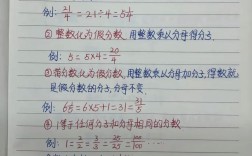 例: 21/4 = 21÷4 = 5 1/4
② 整数化为假分数, 用整数乘以分母得分子.
例: 5 = 5×4 = 20/4
③ 带分数化为假分数, 用整数乘以分母加分子, 得数就
是假分数的分子, 分母不变.
例: 6 1/5 = 6×5+1 = 31 = 31/5
④ 1等于任何分子和分母相同的分数.
例: 1 = 2/2 = 3/3 = 25/25 = 100/100 …